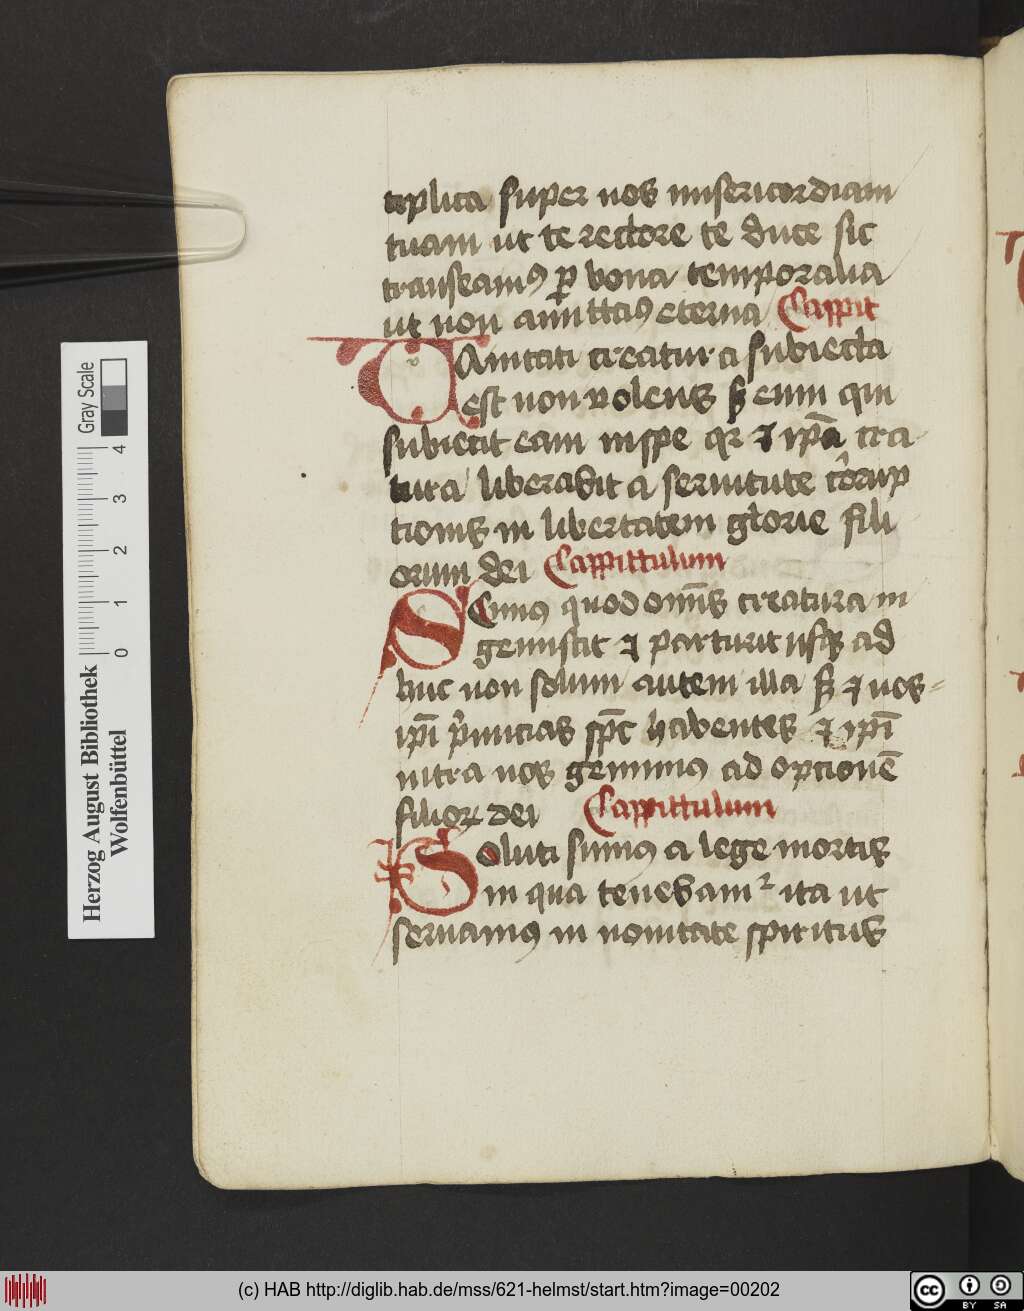 tiplica super nos misericordiam
tuam ut te rectore te duce sic
transeamꝰ ꝑ bona temporalia
ut non amittamꝰ eterna Cappit
Uanitati creatura subiecta
est non volens sꝫ eum qui
subiecit eam inspe qꝛ ⁊ ip̄a crea
tura liberabit a seruitute corrup
tionis in libertatem glorie fili
orum dei Cappittulum
Scimꝰ quod om̄is creatura in
gemiscit ⁊ parturit usqꝫ ad
huc non solum autem illa sꝫ ⁊ nos
ip̄i primicias sp̄c habentes ⁊ ip̄i
intra nos gemimꝰ ad opcionē
filioꝝ dei Cappittulum
Soluti sumꝰ a lege mortis
in qua tenebamᷣ ita ut
seruiamꝰ in nouitate spiritus
Gray Scale
0 1 2 3 4
Herzog August Bibliothek
Wolfenbüttel
(c) HAB http://diglib.hab.de/mss/621-helmst/start.htm?image=00202
cc BY SA